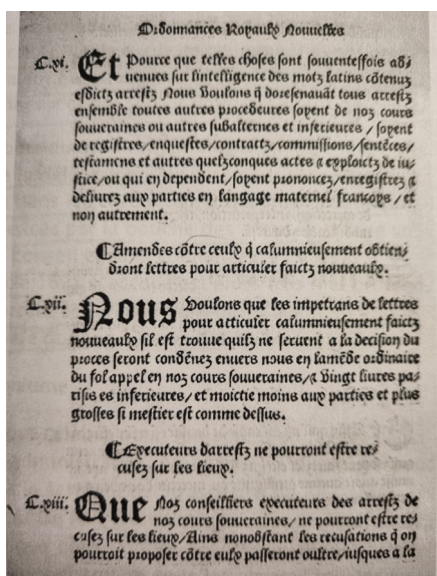 Ordonnances Royaulx Nouvelles
C.xi. Et Pource que telles choses sont souuentesfois ad/
uenues sur lintelligence des motz latins cõtenuz
esdictz arrestz Nous Voulons q̃ doresenauãt tous arrestz
ensemble toutes autres procedeures soyent de noz cours
souueraines ou autres subalternes et inferieures / soyent
de registres / enquestes / contractz / commissions / sentẽces /
testamens et autres quelzconques actes ⁊ exploictz de iu/
stice / ou qui en dependent / soyent prononcez / enregistrez ⁊
deliurez aux parties en langage maternel francoys / et
non autrement.
¶Amendes cõtre ceulx q̃ calumnieusement obtien/
dront lettres pour articuler faictz nouueaulx.
C.xii. Nous Voulons que les impetrans de lettres
pour articuler calumnieusement faictz
nouueaulx sil est trouue quilz ne seruent a la decision du
proces seront condẽnez enuers nous en lamẽde ordinaire
du fol appel en noz cours souueraines / ⁊ Vingt liures pa/
risis es inferieures / et moictie moins aux parties et plus
grosses si mestier est comme dessus.
¶Executeurs darrestz ne pourront estre re/
cusez sur les lieux.
C.xiii. Que Noz conseilliers executeurs des arrestz de
noz cours souueraines / ne pourront estre re/
cusez sur les lieux / Ains nonobstant les recusations q̃ on
pourroit proposer cõtre eulx passeront oultre / iusques a la